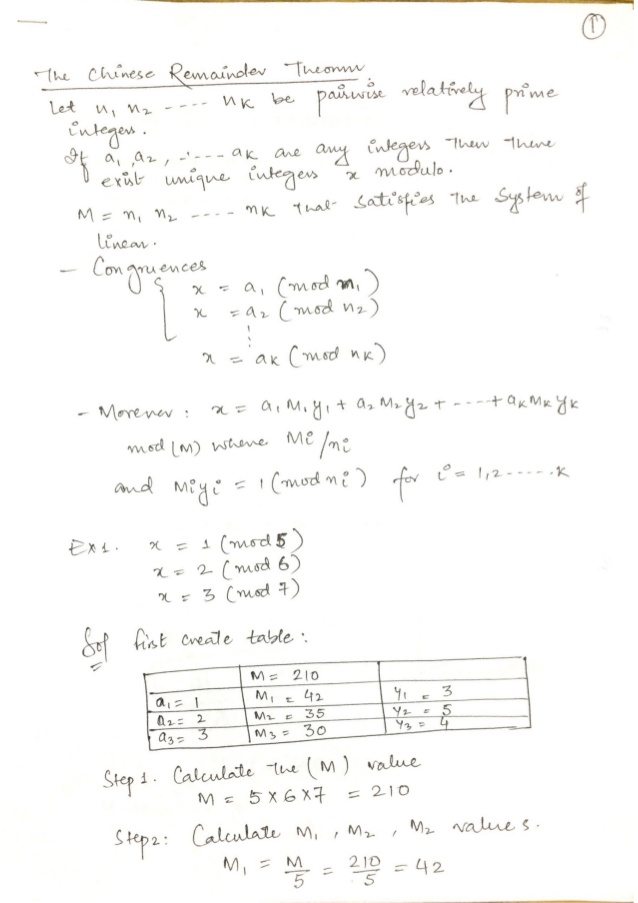 ①
The Chinese Remainder Theorem
Let n₁ n₂ ---- nk be pairwise relatively prime
integers.
If a₁, a₂, ---- ak are any integers Then There
exist unique integers x modulo.
M = n₁ n₂ ---- nk That satisfies The System of
linear.
- Congruences
x = a₁ (mod n₁)
x = a₂ (mod n₂)
⋮
x = ak (mod nk)
- Morever : x = a₁M₁y₁ + a₂M₂y₂ + ---- + akMkyk
mod (M) where Mi/ni
and Miyi = 1 (mod ni) for i = 1,2-----.k
Ex1. x = 1 (mod 5)
x = 2 (mod 6)
x = 3 (mod 7)
Sol first create table :
M = 210
a₁ = 1 M₁ = 42 Y₁ = 3
a₂ = 2 M₂ = 35 Y₂ = 5
a₃ = 3 M₃ = 30 Y₃ = 4
Step 1. Calculate The (M) value
M = 5 X 6 X 7 = 210
Step2: Calculate M₁, M₂, M₂ values.
M₁ = M/5 = 210/5 = 42